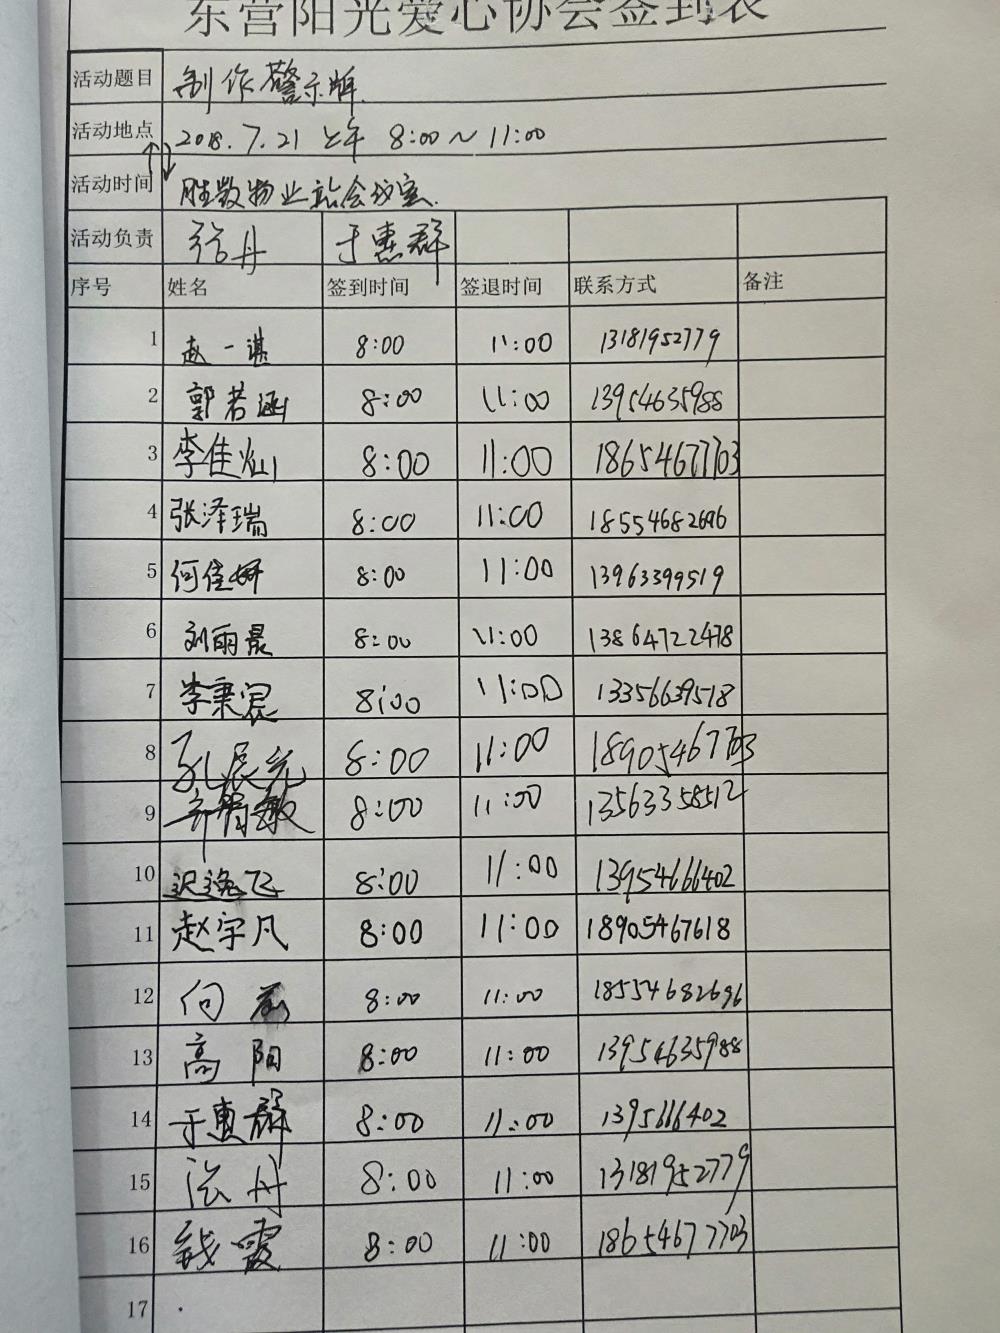 东营阳光爱心协会签到表
活动题目 制作警示牌.
活动地点 2018.7.21 上午 8:00～11:00
活动时间 胜数物业站会议室.
活动负责 丹 于惠群
序号 姓名 签到时间 签退时间 联系方式 备注
1 赵一谌 8:00 11:00 13181952779
2 郭若涵 8:00 11:00 13954635988
3 李佳灿 8:00 11:00 18654677703
4 张泽瑞 8:00 11:00 18554682696
5 何佳妍 8:00 11:00 13963399519
6 刘雨晨 8:00 11:00 13864722478
7 李秉宸 8:00 11:00 13356639518
8 孔晨光 8:00 11:00 18905467703
9 8:00 11:00 13563358512
10 迟逸飞 8:00 11:00 13954666402
11 赵宇凡 8:00 11:00 18905467618
12 向 8:00 11:00 18554682696
13 高阳 8:00 11:00 13954635988
14 于惠群 8:00 11:00 1395666402
15 丹 8:00 11:00 13181952779
16 钱霞 8:00 11:00 18654677703
17